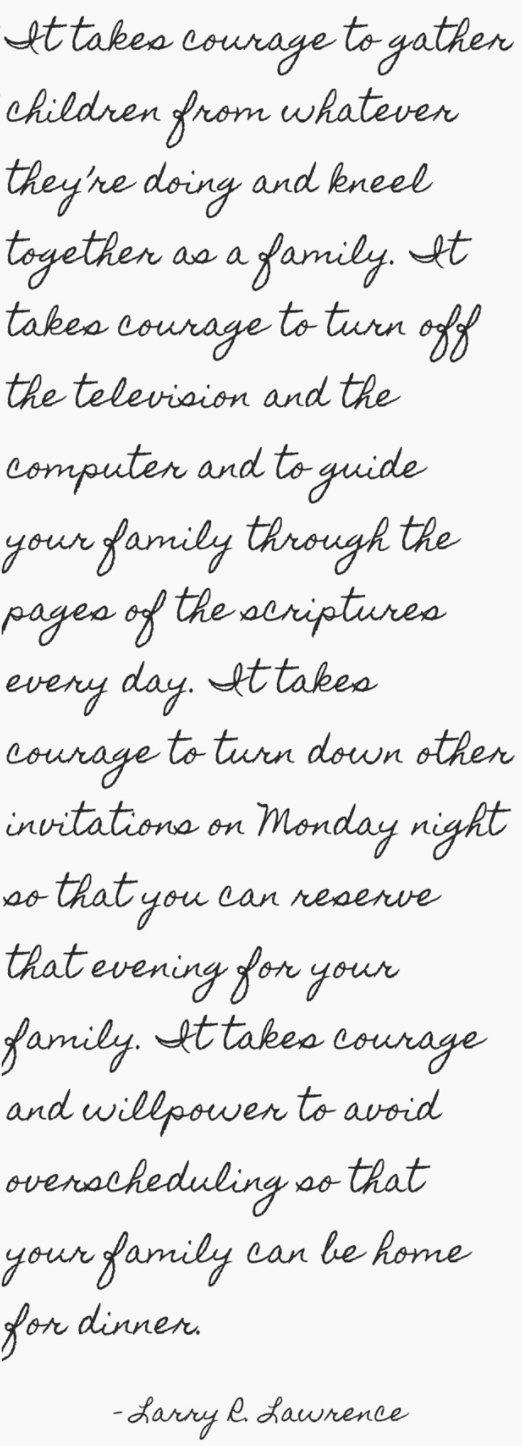 It takes courage to gather
children from whatever
they're doing and kneel
together as a family. It
takes courage to turn off
the television and the
computer and to guide
your family through the
pages of the scriptures
every day. It takes
courage to turn down other
invitations on Monday night
so that you can reserve
that evening for your
family. It takes courage
and willpower to avoid
overscheduling so that
your family can be home
for dinner.
-Larry R. Lawrence